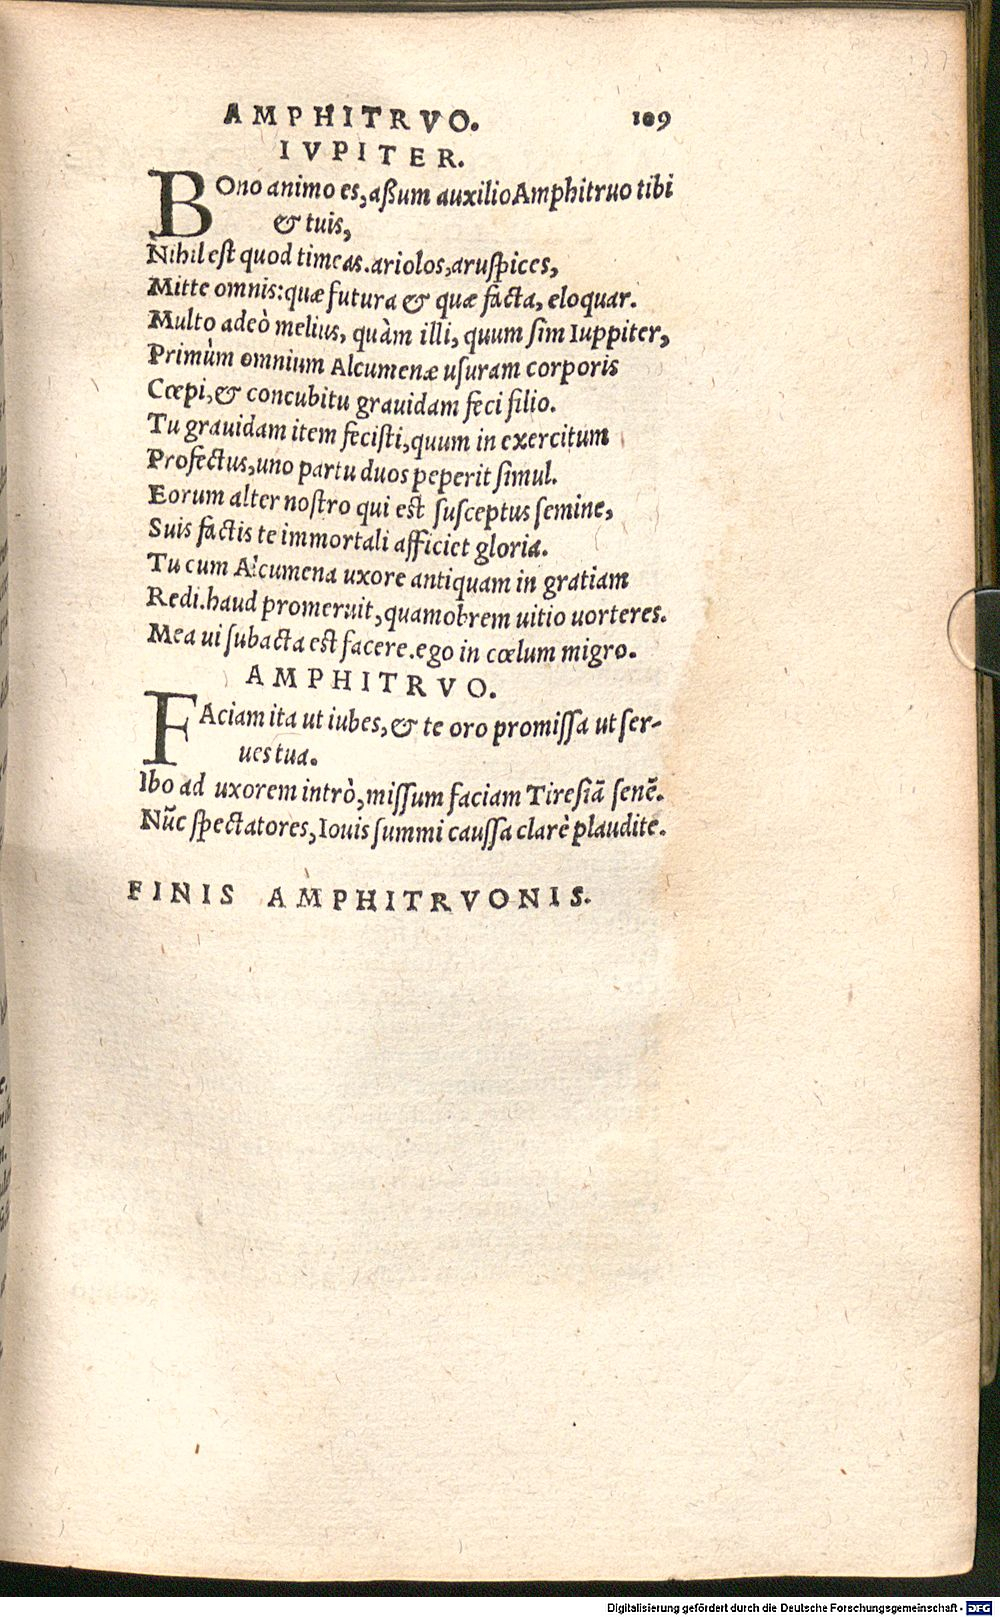 AMPHITRVO. 109
IVPITER.
BOno animo es, aßum auxilio Amphitruo tibi
& tuis,
Nihil est quod timeas. ariolos, aruspices,
Mitte omnis: quæ futura & quæ facta, eloquar.
Multo adeò melius, quàm illi, quum sim Iuppiter,
Primùm omnium Alcumenæ usuram corporis
Cœpi, & concubitu grauidam feci filio.
Tu grauidam item fecisti, quum in exercitum
Profectus, uno partu duos peperit simul.
Eorum alter nostro qui est susceptus semine,
Suis factis te immortali afficiet gloria.
Tu cum Alcumena uxore antiquam in gratiam
Redi. haud promeruit, quamobrem uitio uorteres.
Mea ui subacta est facere. ego in cœlum migro.
AMPHITRVO.
FAciam ita ut iubes, & te oro promissa ut ser-
ues tua.
Ibo ad uxorem intrò, missum faciam Tiresiā senē.
Nūc spectatores, Iouis summi caussa clarè plaudite.
FINIS AMPHITRVONIS.
Digitalisierung gefördert durch die Deutsche Forschungsgemeinschaft - DFG